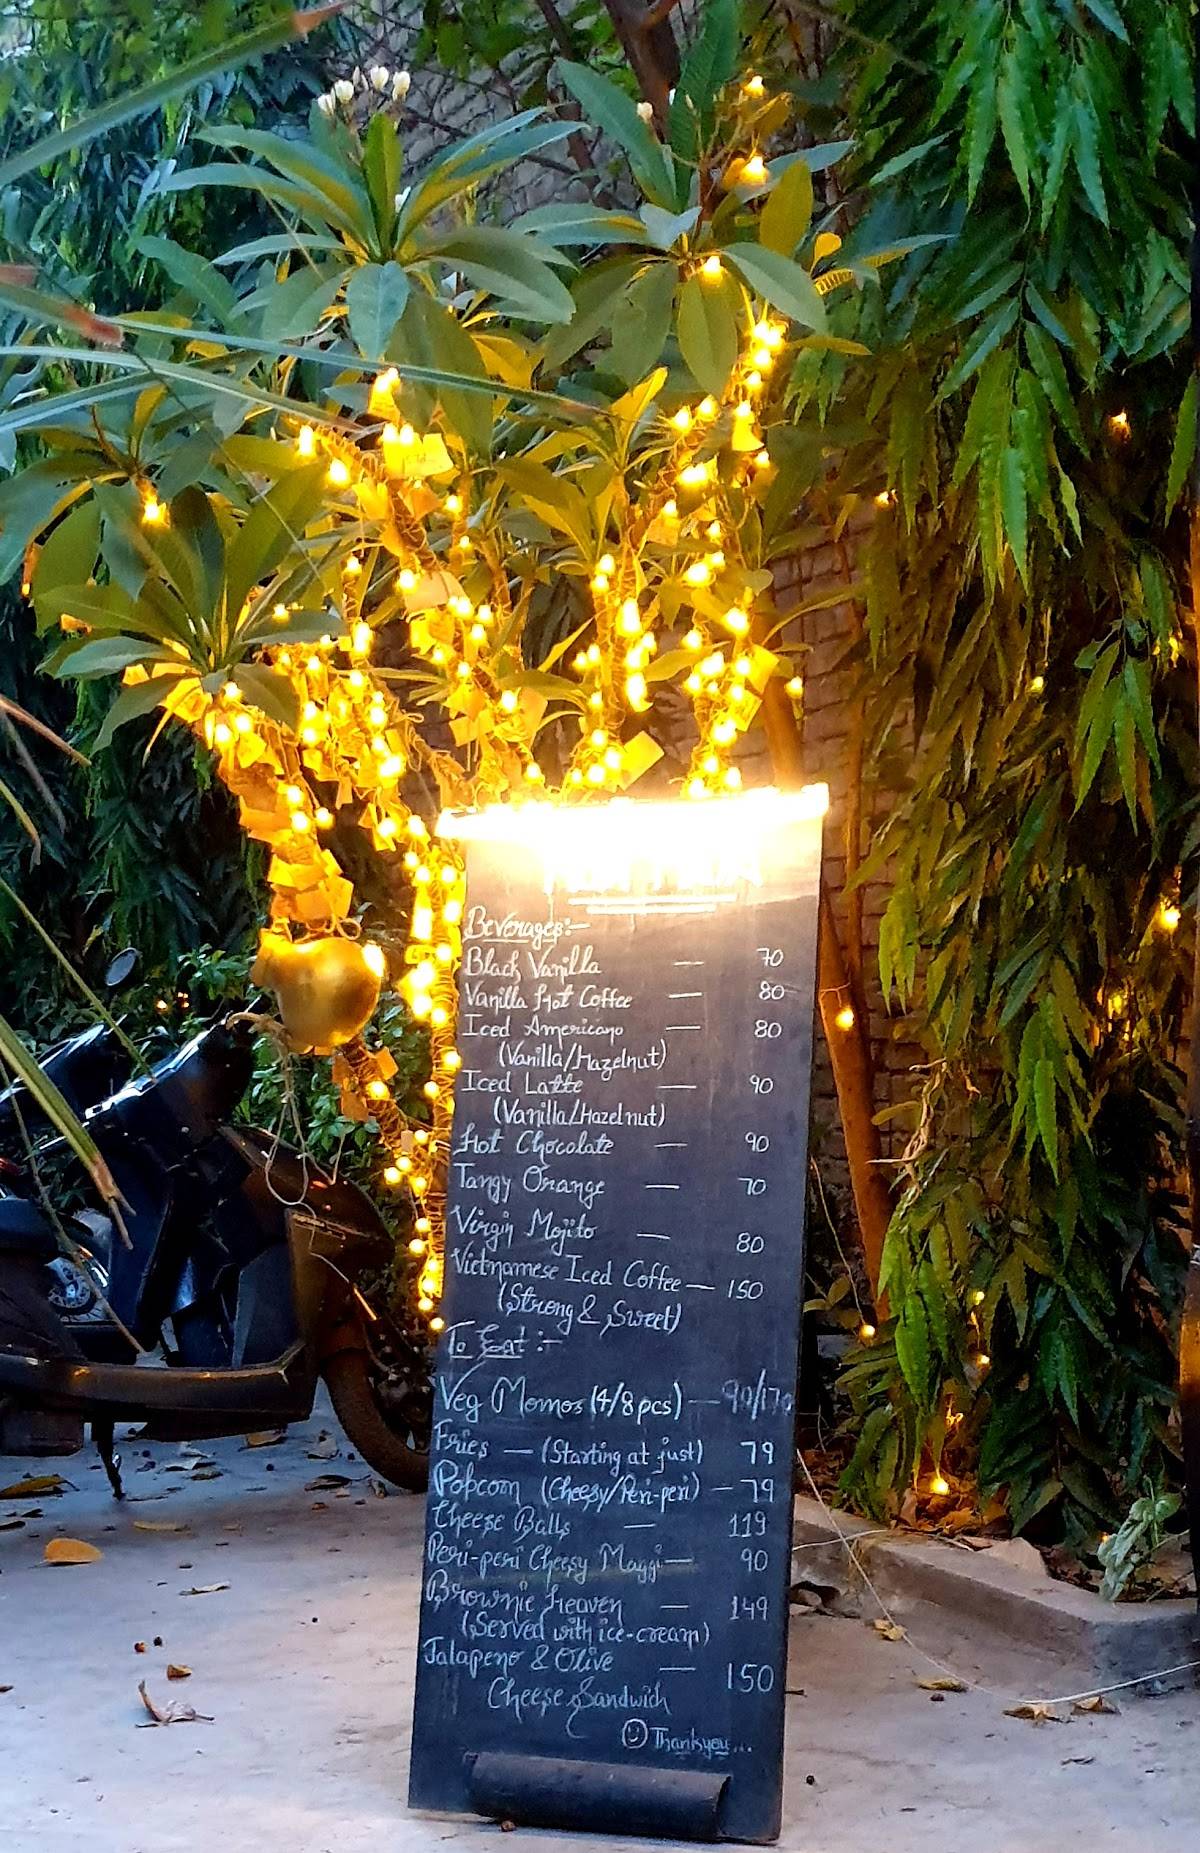 Beverages:-
Black Vanilla — 70
Vanilla Hot Coffee — 80
Iced Americano — 80
(Vanilla/Hazelnut)
Iced Latte — 90
(Vanilla/Hazelnut)
Hot Chocolate — 90
Tangy Orange — 70
Virgin Mojito — 80
Vietnamese Iced Coffee — 150
(Strong & Sweet)
To Eat :-
Veg Momos (4/8pcs) — 90/170
Fries — (Starting at just) 79
Popcorn (Cheesy/Peri-peri) — 79
Cheese Balls — 119
Peri-peri Cheesy Maggi — 90
Brownie Heaven — 149
(Served with ice-cream)
Jalapeno & Olive — 150
Cheese Sandwich
Thankyou...